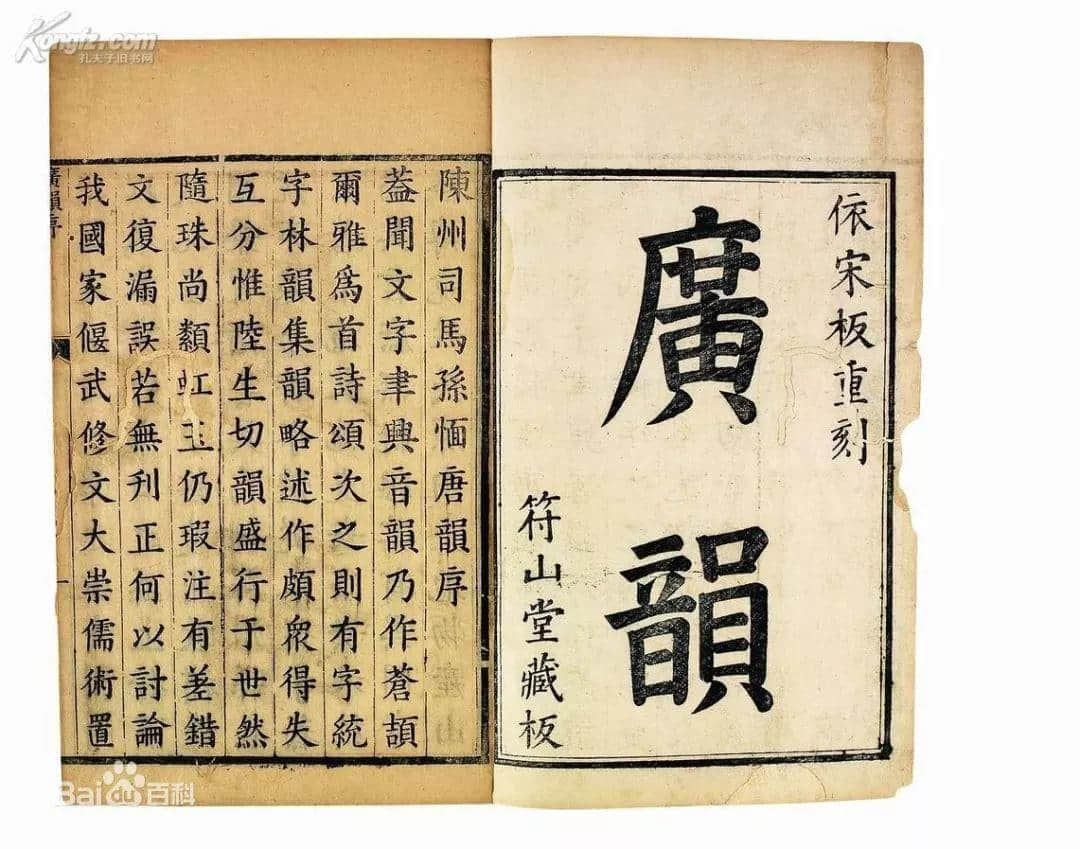 Kongfz.com
孔夫子旧书网
依宋板重刻
廣韻
符山堂藏板
陳州司馬孫愐唐韻序
葢聞文字聿興音韻乃作蒼頡
爾雅爲首詩頌次之則有字統
字林韻集韻略述作頗衆得失
互分惟陸生切韻盛行于世然
隨珠尚纇虹玉仍瑕注有差錯
文復漏誤若無刋正何以討論
我國家偃武修文大崇儒術置
廣韻序
一
Bai du 百科